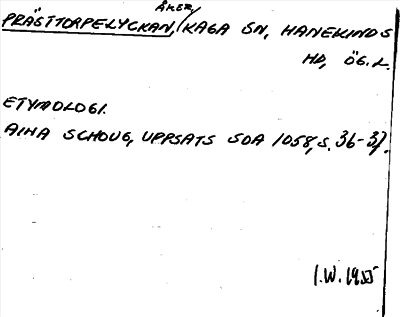 PRÄSTTORPELYCKAN, ÅKER, KAGA SN, HANEKINDS
HD, ÖG. L.
ETYMOLOGI.
AINA SCHOUG, UPPSATS SOA 1058, S. 36-37.
I.W. 1955